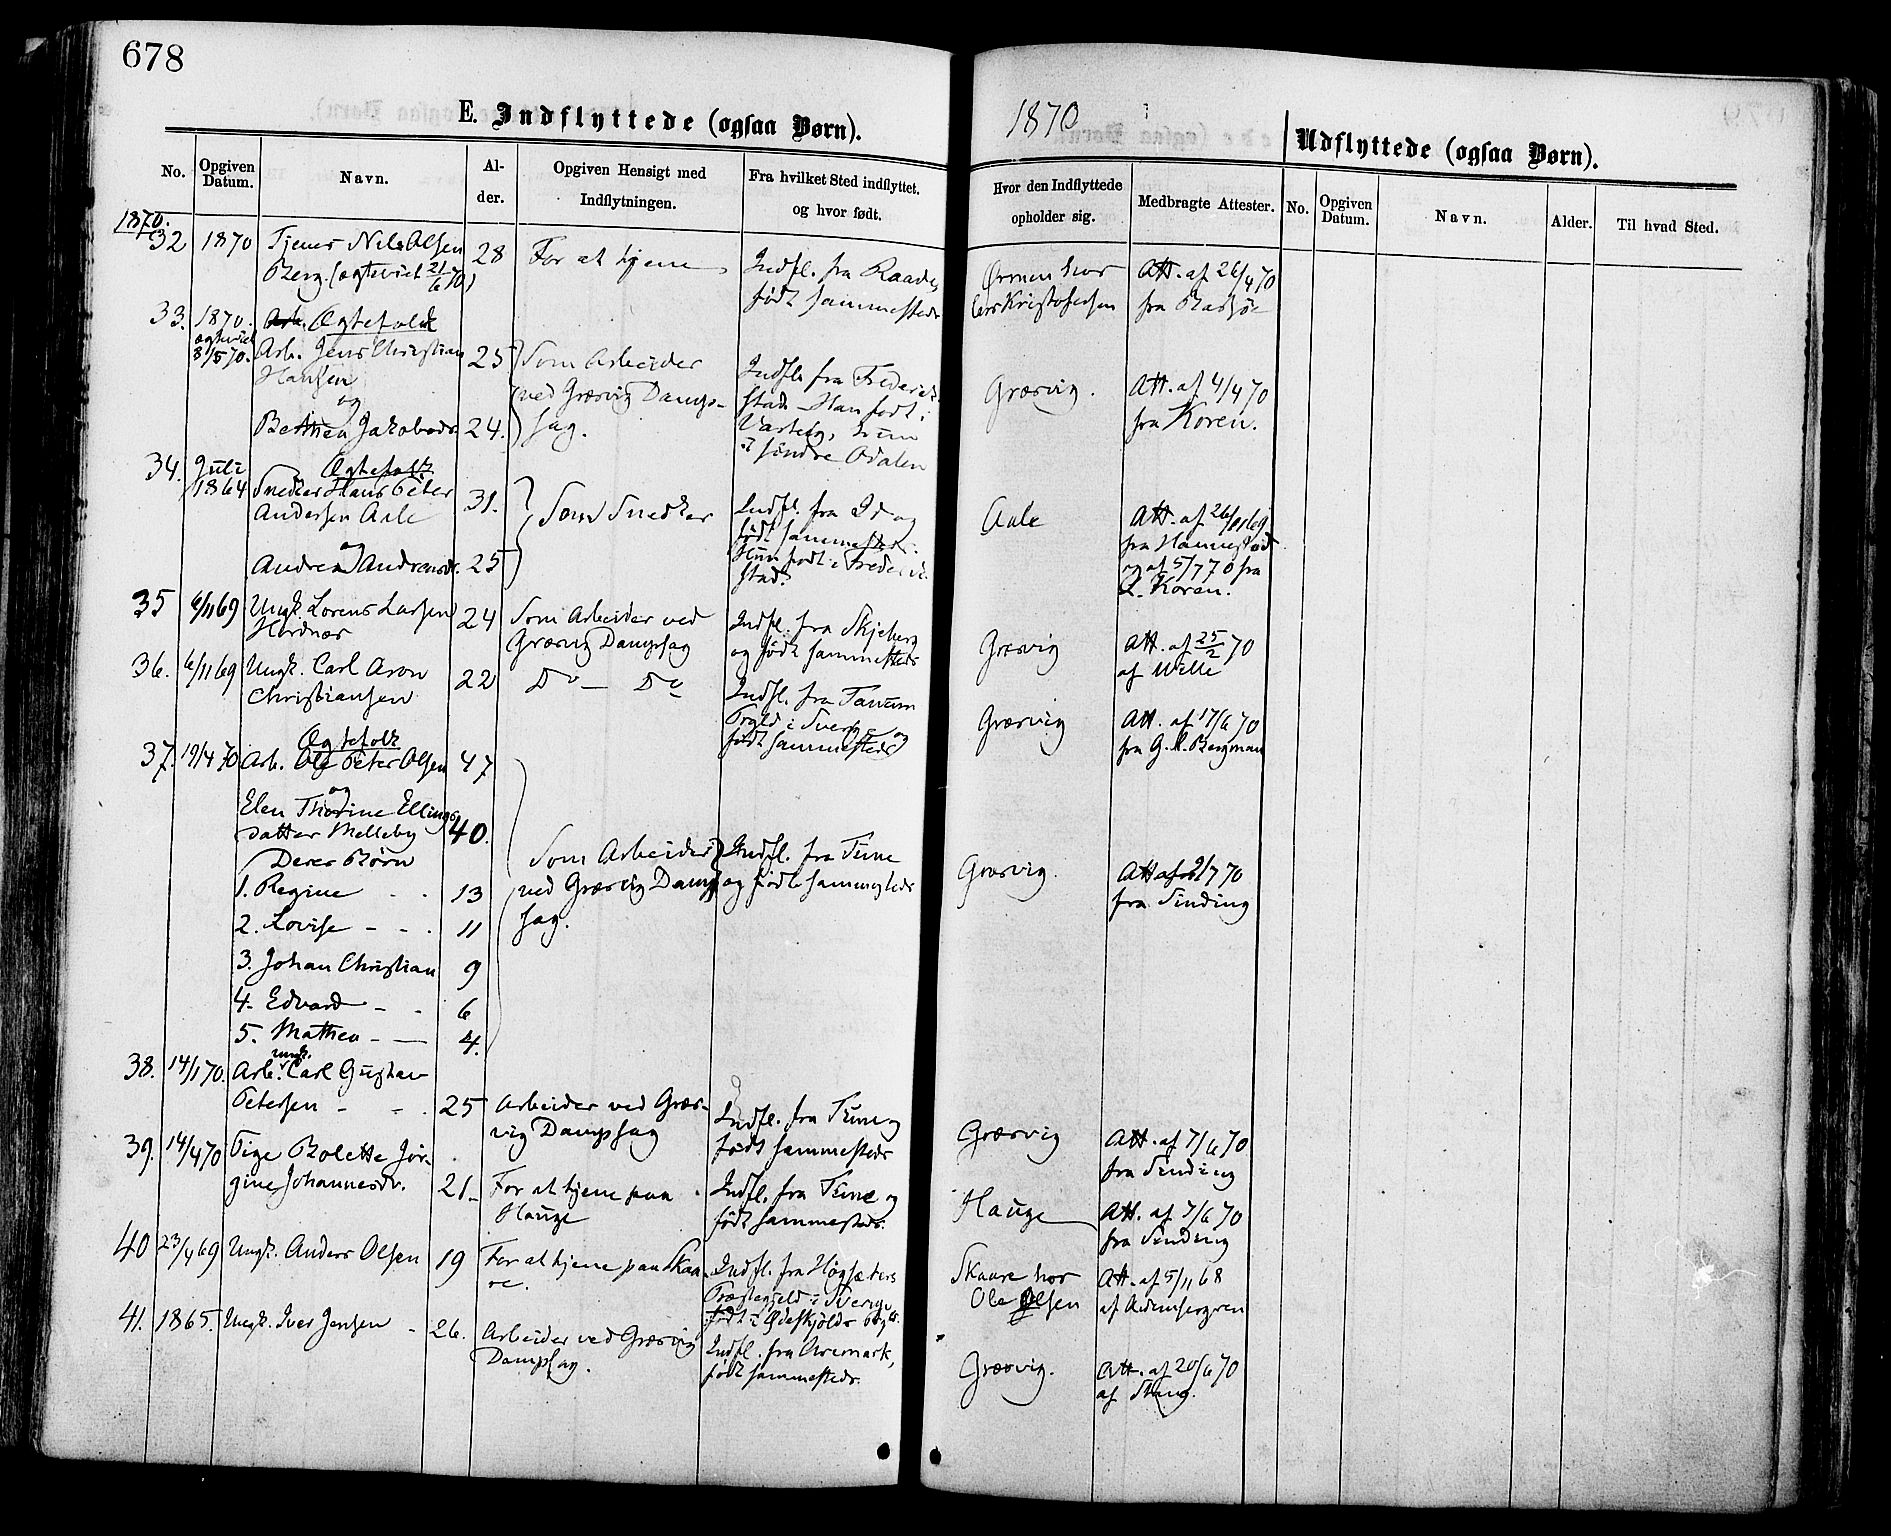 678
E. Indflyttede (ogsaa Børn).
1870
Udflyttede (ogsaa Børn).
No. Opgiven Datum. Navn. Alder. Opgiven Hensigt med Indflytningen. Fra hvilket Sted indflyttet. og hvor født. Hvor den Indflyttede opholder sig. Medbragte Attester. No. Opgiven Datum. Navn. Alder. Til hvad Sted.
1870.
32 1870 Tjener Nils Olsen 28 For at tjene Indfl. fra Raade, Ørmen hos Att. af 26/4 70
Berg. (ægteviet 21/6 70) født sammesteds Lars Kristofersen fra
33. 1870. Ægtefolk
ægteviet 8/5 70. Arb. Jens Christian 25 Som Arbeider Indfl. fra Frederik- Græsvig. Att. af 4/4 70
Hansen ved Græsvig Damp- stad Han født i fra Koren.
og
Bethea Jakobsdr. 24. sag. Varteig, hun
i søndre Odalen
34. Juli Ægtefolk
1864 Snedker Hans Peter 31. Som Snedker Indfl. fra Id og Aale Att. af 26/
Andersen Aale født sammesteds. fra
og Hun født i Frederik- og af 5/7 70 fra
Andrea Andreasdr. 25 stad. Koren.
35 6/11 69 Ungk. Lorens Larsen 24 Som Arbeider ved Indfl. fra Skjeberg Græsvig Att. af 25/2 70
Græsvig Dampsag og født sammesteds af Wille
36. 6/11 69 Ungk. Carl Aron 22 Do — Do Indfl. fra Tanum Græsvig Att. af 17/6 70
Christiansen i Sverige og fra G. Bergman
født sammesteds
Ægtefolk
37. 19/4 70 Arb. Ole Peter Olsen 47
og
Elen Thorine Ellings-
datter Melleby 40.
Deres Børn Som Arbeider Indfl. fra Tune Græsvig. Att. af 70
1. Regine - - 13 ved Græsvig Damp- og fødte sammesteds fra Sinding
2. Lovise - - - 11 sag.
3. Johan Christian 9
4. Edvard - - 6
5. Mathea - — 4.
ungk.
38. 14/1 70. Arb. Carl Gustav
Petersen - - . 25 Arbeider ved Græs- Indfl. fra Tune og Græsvig Att. af 7/6 70
vig Dampsag født sammesteds fra Sinding
39. 14/4 70 Pige Bolette Jør-
gine Johannesdr. 21. For at tjene paa Indfl. fra Tune og Hauge Att. af 7/6 70
Hauge født sammesteds. fra Sinding
40 23/4 69 Ungk. Anders Olsen 19 For at tjene paa Skaa- Indfl. fra Høgsæters Skaare hos Att. af 5/11 68
re. Præstegjeld i Sverige Ole Olsen
født i Ødeskjølds
41. 1865. Ungk. Iver Jensen - 26. Arbeider ved Græsvig Indfl. fra Aremark, Græsvig. Att. af 20/6 70
Dampsag. født sammesteds. af Stang.